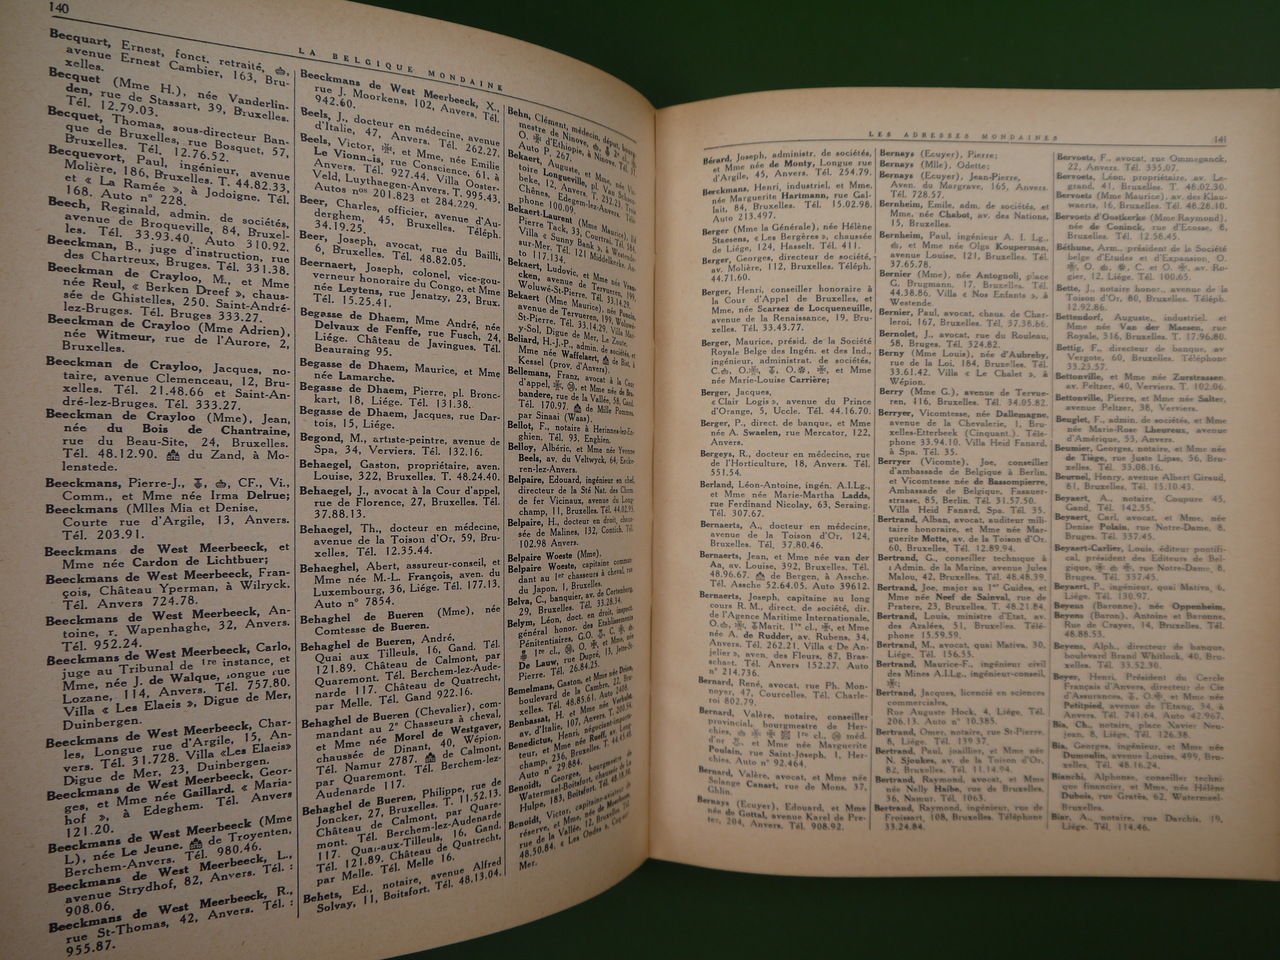 140
LA BELGIQUE MONDAINE
Becquart, Ernest, fonct. retraité,
avenue Ernest Cambier, 163, Bru-
xelles.
Becquet (Mme H.), née Vanderlin-
den, rue de Stassart, 39, Bruxelles.
Tél. 12.79.03.
Becquet, Thomas, sous-directeur Ban-
que de Bruxelles, rue Bosquet, 57,
Bruxelles. Tél. 12.76.52.
Becquevort, Paul, ingénieur, avenue
Molière, 186, Bruxelles. T. 44.82.33,
et « La Ramée », à Jodoigne. Tél.
168. Auto n° 228.
Beech, Reginald, admin. de sociétés,
avenue de Broqueville, 84, Bruxel-
les. Tél. 33.93.40. Auto 310.92.
Beeckman, B., juge d'instruction, rue
des Chartreux, Bruges. Tél. 331.38.
Beeckman de Crayloo, M., et Mme
née Reul, « Berken Dreef », chaus-
sée de Ghistelles, 250, Saint-André-
lez-Bruges. Tél. Bruges 333.27.
Beeckman de Crayloo (Mme Adrien),
née Witmeur, rue de l'Aurore, 2,
Bruxelles.
Beeckman de Crayloo, Jacques, no-
taire, avenue Clemenceau, 12, Bru-
xelles. Tél. 21.48.66 et Saint-An-
dré-lez-Bruges. Tél. 333.27.
Beeckman de Crayloo (Mme), Jean,
née du Bois de Chantraine,
rue du Beau-Site, 24, Bruxelles.
Tél. 48.12.90. du Zand, à Mo-
lenstede.
Beeckmans, Pierre-J., CF., Vi.,
Comm., et Mme née Irma Delrue;
Beeckmans (Mlles Mia et Denise,
Courte rue d'Argile, 13, Anvers.
Tél. 203.91.
Beeckmans de West Meerbeeck, et
Mme née Cardon de Lichtbuer;
Beeckmans de West Meerbeeck, Fran-
çois, Château Yperman, à Wilryck.
Tél. Anvers 724.78.
Beeckmans de West Meerbeeck, An-
toine, r. Wapenhaghe, 32, Anvers.
Tél. 952.24.
Beeckmans de West Meerbeeck, Carlo,
juge au Tribunal de 1re instance, et
Mme, née J. de Walque, longue rue
Lozane, 114, Anvers. Tél. 757.80.
Villa « Les Elaeis », Digue de Mer,
Duinbergen.
Beeckmans de West Meerbeeck, Char-
les, Longue rue d'Argile, 15, An-
vers. Tél. 31.728. Villa «Les Elaeis»
Digue de Mer, 23, Duinbergen.
Beeckmans de West Meerbeeck, Geor-
ges, et Mme née Gaillard. « Maria-
hof », à Edeghem. Tél. Anvers
121.20.
Beeckmans de West Meerbeeck (Mme
L), née Le Jeune. de Troyenten,
Berchem-Anvers. Tél. 980.46.
Beeckmans de West Meerbeeck, L.,
avenue Strydhof, 82, Anvers. Tél. :
908.06.
Beeckmans de West Meerbeeck, R.,
rue St-Thomas, 42, Anvers. Tél. :
955.87.
Beeckmans de West Meerbeeck, X.,
rue J. Moorkens, 102, Anvers. Tél.
942.60.
Beels, J., docteur en médecine, avenue
d'Italie, 47, Anvers. Tél. 262.27.
Beels, Victor, et Mme, née Emilie
Le rue Conscience, 61, à
Anvers. Tél. 927.44. Villa Ooster-
Veld, Luythaegen-Anvers. T. 995.43,
Autos nos 201.823 et 284.229.
Beer, Charles, officier, avenue d'Au-
derghem, 45, Bruxelles. Téléph.
34.19.25.
Beer, Joseph, avocat, rue du Bailli,
6, Bruxelles. Tél. 48.82.05.
Beernaert, Joseph, colonel, vice-gou-
verneur honoraire du Congo, et Mme
née Leytens, rue Jenatzy, 23, Brux.
Tél. 15.25.41.
Begasse de Dhaem, Mme André, née
Delvaux de Fenffe, rue Fusch, 24,
Liége. Château de Javingues. Tél.
Beauraing 95.
Begasse de Dhaem, Maurice, et Mme
née Lamarche.
Begasse de Dhaem, Pierre, pl. Bronc-
kart, 18, Liége. Tél. 131.38.
Begasse de Dhaem, Jacques, rue Dar-
tois, 15, Liége.
Begond, M., artiste-peintre, avenue de
Spa, 34, Verviers. Tél. 132.16.
Behaegel, Gaston, propriétaire, aven.
Louise, 322, Bruxelles. T. 48.24.40.
Behaegel, J., avocat à la Cour d'appel,
rue de Florence, 27, Bruxelles. Tél.
37.88.13.
Behaegel, Th., docteur en médecine,
avenue de la Toison d'Or, 59, Bru-
xelles. Tél. 12.35.44.
Behaeghel, Abert, assureur-conseil, et
Mme née M.-L. François, aven. du
Luxembourg, 36, Liége. Tél. 177.13.
Auto n° 7854.
Behaghel de Bueren (Mme), née
Comtesse de Bueren.
Behaghel de Bueren, André,
Quai aux Tilleuls, 16, Gand. Tél.
121.89. Château de Calmont, par
Quaremont. Tél. Berchem-lez-Aude-
narde 117. Château de Quatrecht,
par Melle. Tél. Gand 922.16.
Behaghel de Bueren (Chevalier), com-
mandant au 2e Chasseurs à cheval,
et Mme née Morel de Westgaver,
chaussée de Dinant, 40, Wépion.
Tél. Namur 2787. de Calmont,
par Quaremont. Tél. Berchem-lez-
Audenarde 117.
Behaghel de Bueren, Philippe, rue de
Joncker, 27, Bruxelles. T. 11.52.13.
Château de Calmont, par Quare-
mont. Tél. Berchem-lez-Audenarde
117. Quai-aux-Tilleuls, 16, Gand.
Tél. 121.89. Château de Quatrecht,
par Melle. Tél. Melle 16.
Behets, Ed., notaire, avenue Alfred
Solvay, 11, Boitsfort. Tél. 48.13.04.
Behn, Clément, médecin, député,
mestre de Ninove,
O. d'Ethiopie, à Ninove.
Auto P. 267.
Bekaert, Auguste, et Mme, née
toire Longueville, pl. Van
beke, 12, Anvers. T. 232.23.
Chênes, Edegem-lez-Anvers.
phone 100.09.
Bekaert-Laurent (Mme Maurice),
Pierre Tack, 33, Courtrai. Tél.
Villa « Sunny Bank », Westende-
sur-Mer. Tél. 121 Middelkerke.
to 117.134.
Bekaert, Ludovic, et Mme née
cken, avenue de Tervueren, 199,
Woluwé-St-Pierre. Tél. 33.14.29.
Bekaert (Mme Maurice), née
avenue de Tervueren, 199, Woluwé-
St-Pierre. Tél. 33.14.29. Villa
y-Sol, Digue de Mer, Le Zoute.
Beliard, H.-J.-P., admin. de sociétés, et
Mme née Waffelaert, de Bist, à
Kessel (prov. d'Anvers).
Bellemans, Franz, avocat à la Cour
d'appel, et Mme née de
bandere, rue de la Vallée, 58, Gand.
Tél. 170.97. de Mille Pommes,
par Sinaai (Waas).
Bellot, F., notaire à Herinnes-lez-En-
ghien. Tél. 93, Enghien.
Belloy, Albéric, et Mme née Yvonne
Beels, av. du Veltwyck, 64, Eecke-
ren-lez-Anvers.
Belpaire, Edouard, ingénieur en chef,
directeur de la Sté Nat. des Chem.
de fer Vicinaux, avenue du Long
champ, 11, Bruxelles. Tél. 44.02.95.
Belpaire, H., docteur en droit, chaus-
sée de Malines, 132, Contich. Tél.
102.98 Anvers.
Belpaire Woeste (Mme).
Belpaire Woeste, capitaine comman-
dant au 1er chasseurs à cheval, rue
du Japon, 1, Bruxelles.
Belva, C., banquier, av. de Cortenberg,
29, Bruxelles. Tél. 33.28.34.
Belym, Léon, doct. en droit, inspect.
général honor. des Etablissements
Pénitentiaires, G.O.
1re cl., et Mme, née
De Lauw, rue Dupré, 13, Jette-St-
Pierre. Tél. 26.84.25.
Bemelmans, Gaston, et Mme née
boulevard de la Cambre, 22, Bru-
xelles. Tél. 48.85.61. Auto 2408.
Benbassat, H. et Mme née
av. d'Italie, 107, Anvers. T. 200.50.
Benedictus, Henri,
teur, et Mme née
champ, 236, Bruxelles. T.
Auto n° 29.884.
Benoidt, Georges, bourgmestre
Watermael-Boitsfort, chaussée de La
Hulpe, 183, Boitsfort. Tél.
Benoidt, Victor, capitaine-aviateur de
réserve, et Mme née de
rue de la Vallée, 12, Bruxelles. Tél.
48.50.84. « Les Ondes »,
Mer.
LES ADRESSES MONDAINES
141
Bérard, Joseph, administr. de sociétés,
et Mme née de Monty, Longue rue
d'Argile, 45, Anvers. Tél. 254.79.
Berckmans, Henri, industriel, et Mme,
née Marguerite Hartmann, rue Gal-
lait, 84, Bruxelles. Tél. 15.02.98.
Auto 213.497.
Berger (Mme la Générale), née Hélène
Staesens, « Les Bergères », chaussée
de Gand, 124, Hasselt. Tél. 411.
Berger, Georges, directeur de société,
av. Molière, 112, Bruxelles. Téléph.
44.71.60.
Berger, Henri, conseiller honoraire à
la Cour d'Appel de Bruxelles, et
Mme, née Scarsez de Locqueneuille,
avenue de la Renaissance, 19, Bru-
xelles. Tél. 33.43.77.
Berger, Maurice, présid. de la Société
Royale Belge des Ingén. et des Ind.,
ingénieur, administrat. de sociétés,
C. O. O. et Mme
née Marie-Louise Carrière;
Berger, Jacques,
« Clair Logis », avenue du Prince
d'Orange, 5, Uccle. Tél. 44.16.70.
Berger, P., direct. de banque, et Mme
née A. Swaelen, rue Mercator, 122,
Anvers.
Bergeys, R., docteur en médecine, rue
de l'Horticulture, 18, Anvers. Tél.
551.54.
Berland, Léon-Antoine, ingén. A.I.Lg.,
et Mme née Marie-Martha Ladds,
rue Ferdinand Nicolay, 63, Seraing.
Tél. 307.67.
Bernaerts, A., docteur en médecine,
avenue de la Toison d'Or, 124,
Bruxelles. Tél. 37.80.46.
Bernaerts, Jean, et Mme née van der
Aa, av. Louise, 392, Bruxelles. Tél.
48.96.67. de Bergen, à Assche.
Tél. Assche 52.64.05. Auto 39612.
Bernaerts, Joseph, capitaine au long
cours R. M., direct. de société, dir.
de l'Agence Maritime Internationale,
O. Marit. 1re cl., et Mme
née A. de Rudder, av. Rubens, 34,
Anvers. Tél. 262.21. Villa « De An-
jelier », aven. des Fleurs, 87, Bras-
schaet. Tél. Anvers 152.27. Auto
n° 214.736.
Bernard, René, avocat, rue Ph. Mon-
noyer, 47, Courcelles. Tél. Charle-
roi 802.79.
Bernard, Valère, notaire, conseiller
provincial, bourgmestre de Her-
chies, 1re cl., méd.
d'or et Mme née Marguerite
Poulain, rue Saint-Joseph, 1, Her-
chies. Auto n° 92.464.
Bernard, Valère, avocat, et Mme née
Solange Canart, rue de Mons, 37,
Ghlin.
Bernays (Ecuyer), Edouard, et Mme
née de Gottal, avenue Karel de Pre-
ter, 204, Anvers. Tél. 908.92.
Bernays (Ecuyer), Pierre;
Bernays (Mlle), Odette;
Bernays (Ecuyer), Jean-Pierre,
Aven. du Margrave, 165, Anvers.
Tél. 728.53.
Bernheim, Emile, adm. de sociétés, et
Mme, née Chabot, av. des Nations,
15, Bruxelles.
Bernheim, Paul, ingénieur A. I. Lg.,
et Mme née Olga Kouperman,
avenue Louise, 121, Bruxelles. Tél.
37.65.78.
Bernier (Mme), née Antognoli, place
G. Brugmann, 17, Bruxelles. Tél.
44.38.86. Villa « Nos Enfants », à
Westende.
Bernier, Paul, avocat, chaus. de Char-
leroi, 167, Bruxelles. Tél. 37.38.66.
Bernolet, J., avocat, rue du Rouleau,
58, Bruges. Tél. 324.82.
Berny (Mme Louis), née d'Aubreby,
rue de la Loi, 184, Bruxelles. Tél.
33.61.42. Villa « Le Chalet », à
Wépion.
Berry (Mme G.), avenue de Tervue-
ren, 416, Bruxelles. Tél. 34.05.82.
Berryer, Vicomtesse, née Dallemagne,
avenue de la Chevalerie, 1, Bru-
xelles-Etterbeek (Cinquant.). Télé-
phone 33.94.10. Villa Heid Fanard,
à Spa. Tél. 35.
Berryer (Vicomte), Joe, conseiller
d'ambassade de Belgique à Berlin,
et Vicomtesse née de Bassompierre,
Ambassade de Belgique, Fasauer-
strasse, 85, Berlin. Tél. 31.57.50.
Villa Heid Fanard, Spa. Tél. 35.
Bertrand, Alban, avocat, auditeur mili-
taire honoraire, et Mme née Mar-
guerite Motte, av. de la Toison d'Or.
60, Bruxelles. Tél. 12.89.94.
Bertrand, G., conseiller technique à
l'Admin. de la Marine, avenue Jules
Malou, 42, Bruxelles. Tél. 48.48.39.
Bertrand, Joe, major au 1er Guides, et
Mme née Neef de Sainval, rue de
Pratere, 23, Bruxelles. T. 48.21.84.
Bertrand, Louis, ministre d'Etat, av.
des Azalées, 51, Bruxelles. Télé-
phone 15.59.59.
Bertrand, M., avocat, quai Mativa, 30,
Liége. Tél. 156.55.
Bertrand, Maurice-F., ingénieur civil
des Mines A.I.Lg., ingénieur-conseil,
Bertrand, Jacques, licencié en sciences
commerciales,
Rue Auguste Hock, 4, Liége. Tél.
206.13. Auto n° 10.385.
Bertrand, Omer, notaire, rue St-Pierre,
8, Liége. Tél. 139.37.
Bertrand, Paul, joaillier, et Mme née
N. Sjoukes, av. de la Toison d'Or,
82, Bruxelles. Tél. 11.14.94.
Bertrand, Raymond, avocat, et Mme
née Nelly Haibe, rue de Bruxelles,
36, Namur. Tél. 1063.
Bertrand, Raymond, ingénieur, rue de
Froissart, 108, Bruxelles. Téléphone
33.24.84.
Bervoets, F., avocat, rue Ommeganck,
22, Anvers. Tél. 335.07.
Bervoets, Léon, propriétaire, av. Le-
grand, 41, Bruxelles. T. 48.02.30.
Bervoets (Mme Maurice), av. des Klau-
waerts, 16, Bruxelles. Tél. 48.28.10.
Bervoets d'Oostkerke (Mme Raymond),
née de Coninck, rue d'Ecosse, 8,
Bruxelles. Tél. 12.58.45.
Béthune, Arm., président de la Société
belge d'Etudes et d'Expansion, O.
O. C. et O. av. Ro-
gier, 12, Liége. Tél. 100.65.
Bette, J., notaire honor., avenue de la
Toison d'Or, 80, Bruxelles. Téléph.
12.92.86.
Bettendorf, Auguste, industriel, et
Mme née Van der Maesen, rue
Royale, 316, Bruxelles. T. 17.96.80.
Bettig, F., directeur de banque, av.
Vergote, 60, Bruxelles. Téléphone
33.23.57.
Bettonville, et Mme née Zurstrassen,
av. Peltzer, 40, Verviers. T. 102.06.
Bettonville, Pierre, et Mme née Salter,
avenue Peltzer, 38, Verviers.
Beuglet, F., admin. de sociétés, et Mme
née Marie-Rose Lheureux, avenue
d'Amérique, 53, Anvers.
Beumier, Georges, notaire, et Mme née
de Tiège, rue Juste Lipse, 36, Bru-
xelles. Tél. 33.08.16.
Beurnel, Henry, avenue Albert Giraud,
81, Bruxelles. Tél. 15.10.43.
Beyaert, A., notaire, Coupure 45,
Gand. Tél. 142.55.
Beyaert, Carl, avocat, et Mme, née
Denise Polain, rue Notre-Dame, 8,
Bruges. Tél. 337.45.
Beyaert-Carlier, Louis, éditeur pontifi-
cal, président des Editeurs de Bel-
gique, rue Notre-Dame, 8,
Bruges. Tél. 337.45.
Beyaert, P., ingénieur, quai Mativa, 6,
Liége. Tél. 130.97.
Beyens (Baronne), née Oppenheim.
Beyens (Baron), Antoine et Baronne,
Rue de Crayer, 14, Bruxelles. Tél.
48.88.53.
Beyens, Alph., directeur de banque,
boulevard Brand Whitlock, 40, Bru-
xelles. Tél. 33.52.30.
Beyer, Henri, Président du Cercle
Français d'Anvers, directeur de Cie
d'Assurances, O. et Mme née
Petitpied, avenue de l'Etang, 34, à
Anvers. Tél. 741.64. Auto 42.967.
Bia, Ch., notaire, place Xavier Neu-
jean, 8, Liége. Tél. 126.38.
Bia, Georges, ingénieur, et Mme née
Dumoulin, avenue Louise, 499, Bru-
xelles. Tél. 48.16.24.
Bianchi, Alphonse, conseiller techni-
que financier, et Mme, née Hélène
Dubois, rue Gratès, 62, Watermael-
Bruxelles.
Biar, A., notaire, rue Darchis, 19,
Liége. Tél. 114.46.